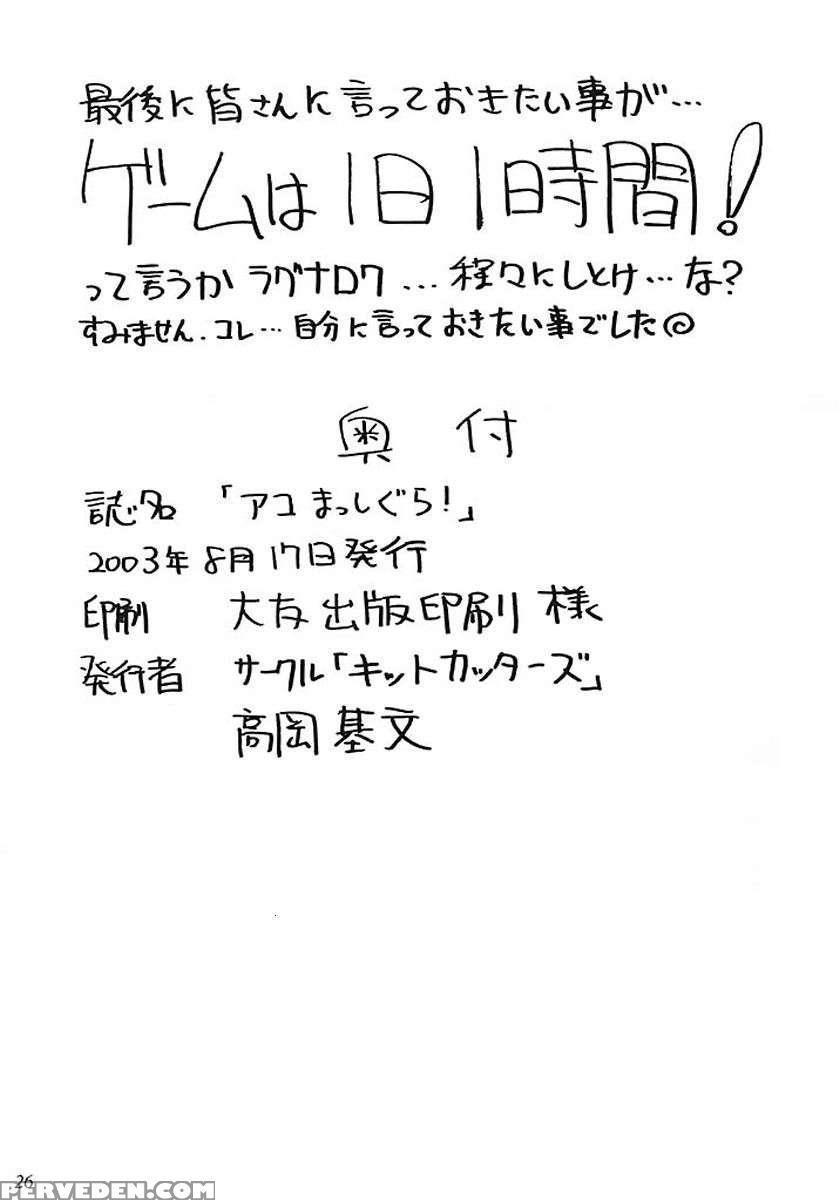 最後に皆さんに言っておきたい事が…
ゲームは1日1時間!
って言うかラグナロク…程々にしとけ…な?
すみません.コレ…自分に言っておきたい事でした
奥付
誌名 「アコまっしぐら!」
2003年8月17日発行
印刷 大友出版印刷様
発行者 サークル「キットカッターズ」
高岡基文
26
PERVEDEN.COM